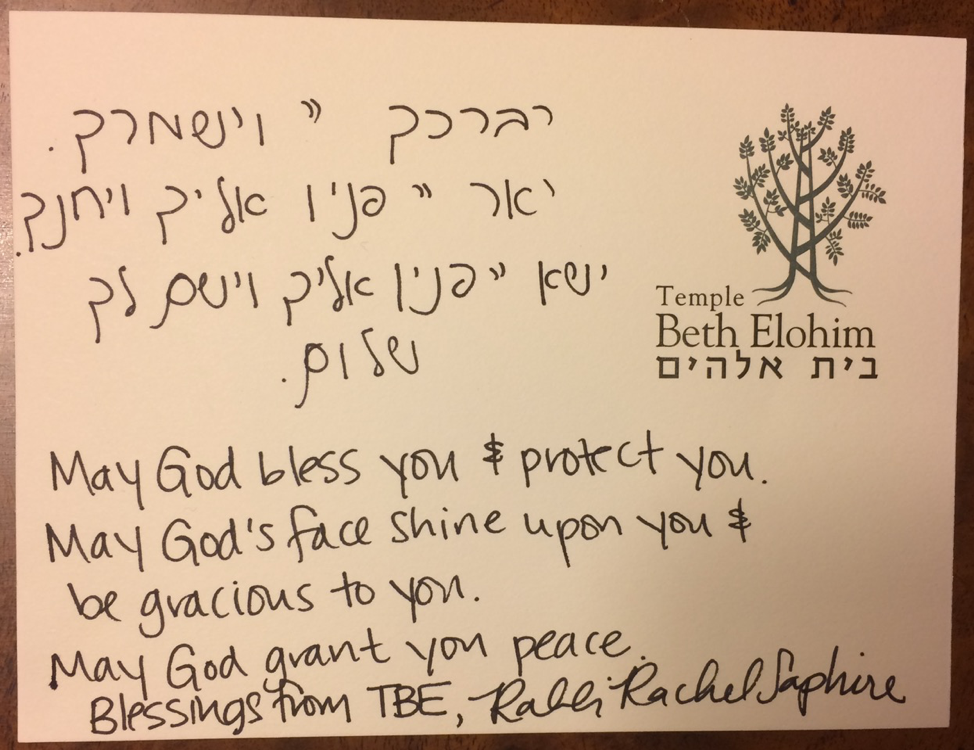 יברכך יי וישמרך.
יאר יי פניו אליך ויחנך.
ישא יי פניו אליך וישם לך
שלום.
Temple
Beth Elohim
בית אלהים
May God bless you & protect you.
May God's face shine upon you &
be gracious to you.
May God grant you peace.
Blessings from TBE, Rabbi Rachel Saphire